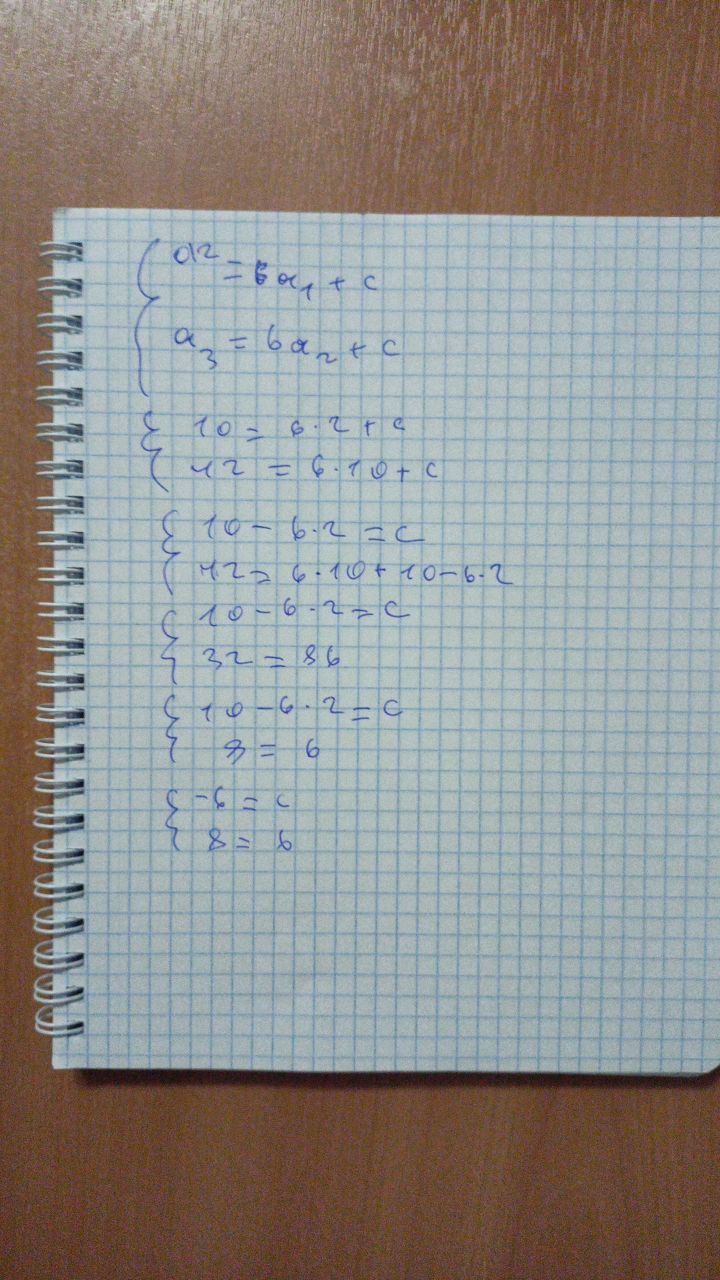 a2 = b a₁ + c
a₃ = b a₂ + c
10 = b·2 + c
42 = b·10 + c
10 - b·2 = c
42 = b·10 + 10 - b·2
10 - b·2 = c
32 = 8b
10 - b·2 = c
8 = b
-6 = c
8 = b